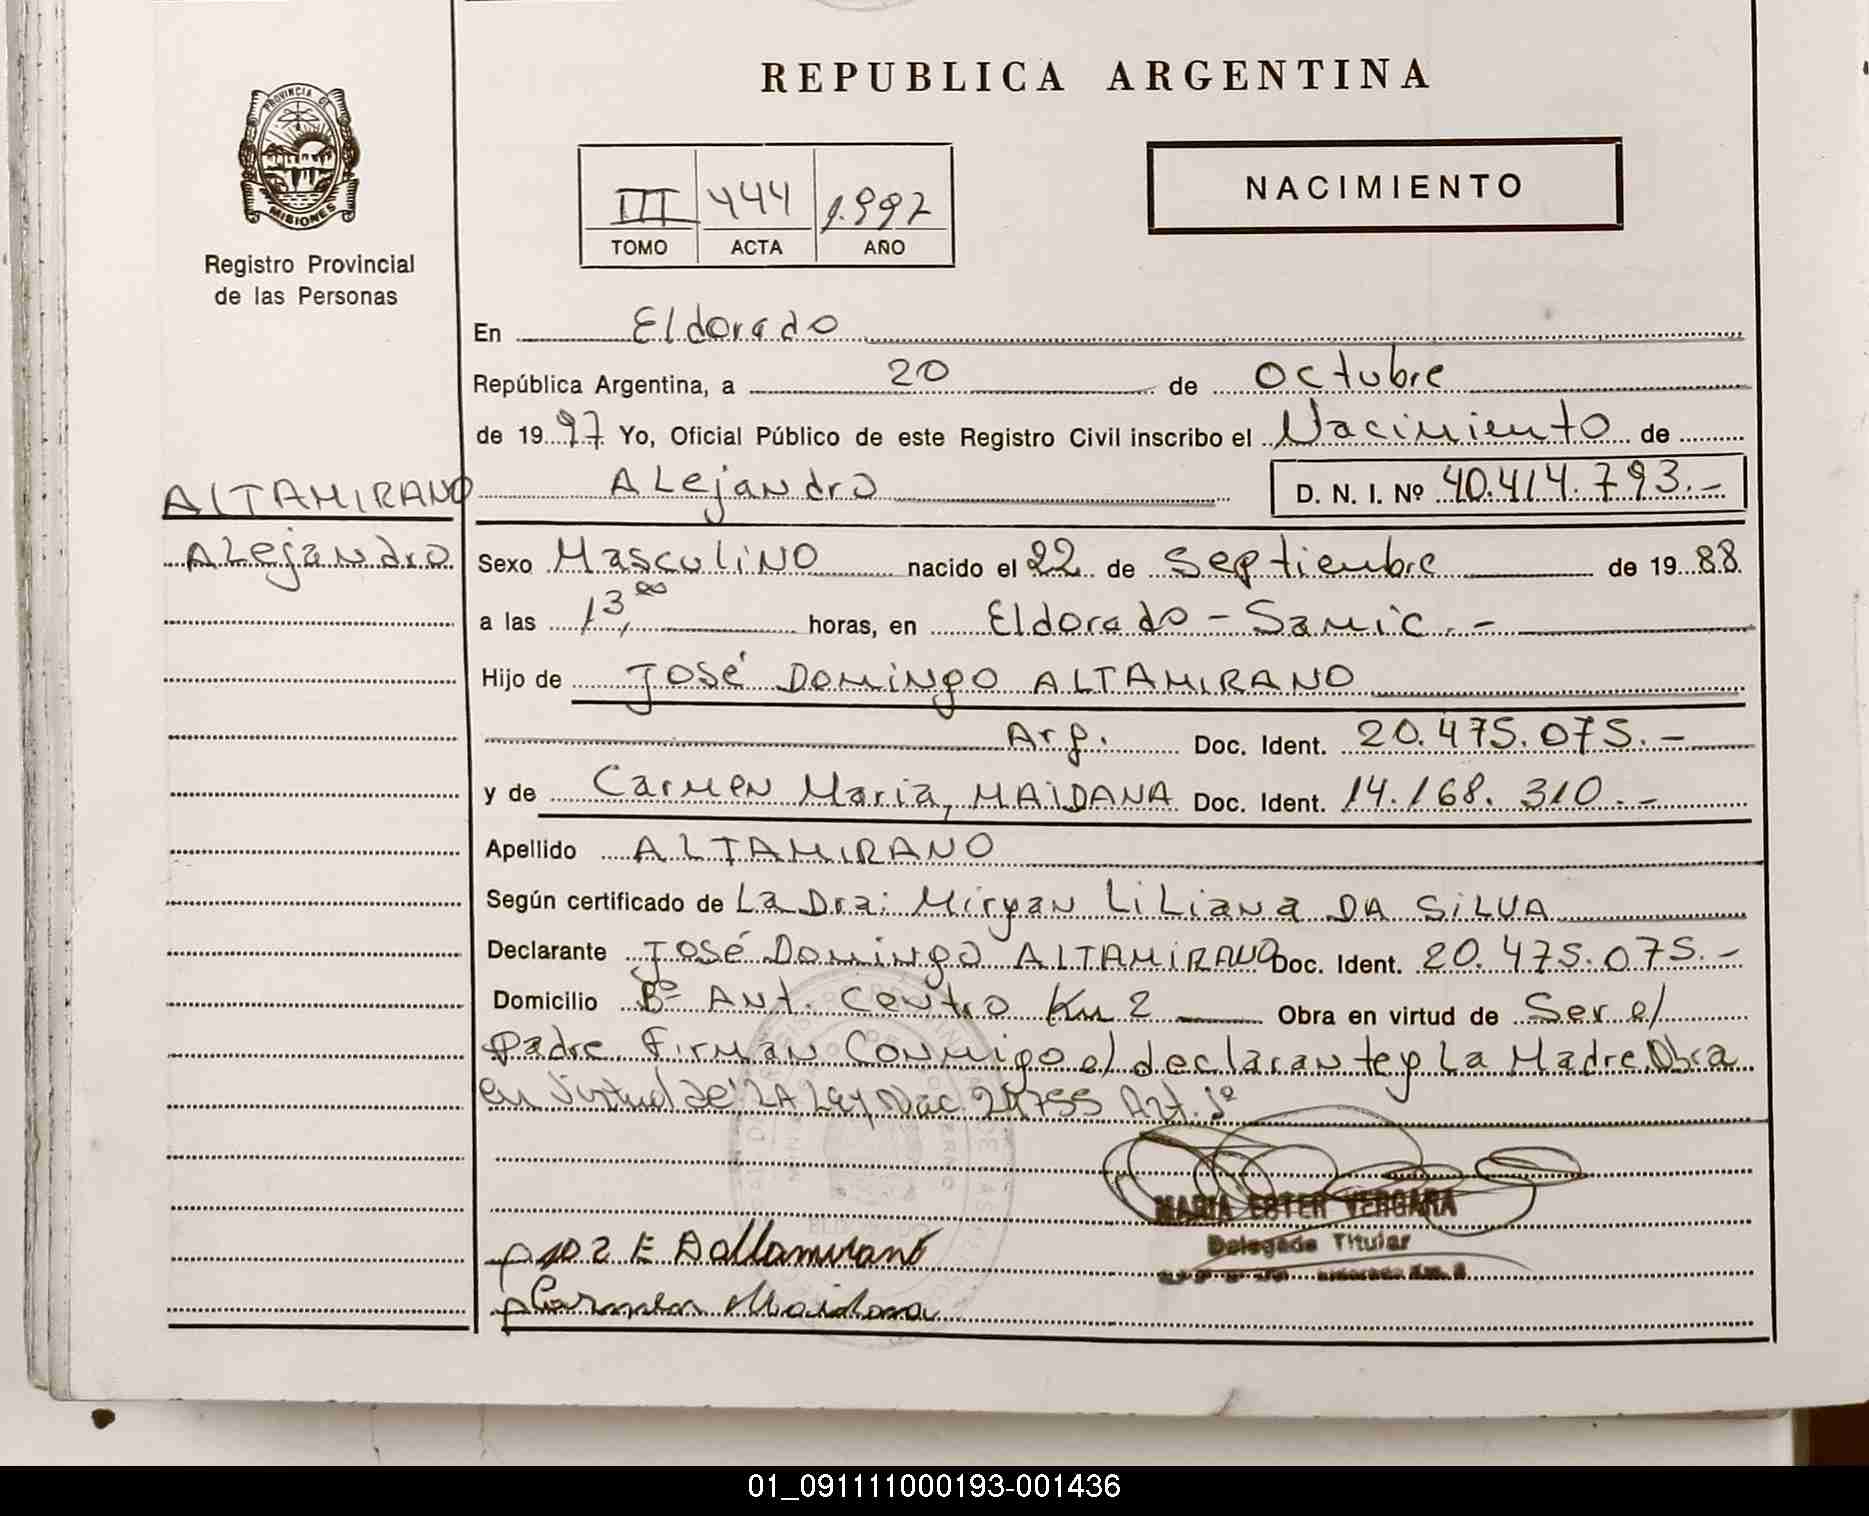 PROVINCIA DE
MISIONES
Registro Provincial
de las Personas
REPUBLICA ARGENTINA
III 444 1.997
TOMO ACTA AÑO
NACIMIENTO
En Eldorado
República Argentina, a 20 de Octubre
de 1997 Yo, Oficial Público de este Registro Civil inscribo el Nacimiento de
ALTAMIRANO
Alejandro D. N. I. Nº 40.414.793.-
Alejandro
Sexo Masculino nacido el 22 de Septiembre de 1988
a las 13,00 horas, en Eldorado - Samic.-
Hijo de José Domingo ALTAMIRANO
Arg. Doc. Ident. 20.475.075.-
y de Carmen Maria, MAIDANA Doc. Ident. 14.168.310.-
Apellido ALTAMIRANO
Según certificado de La Dra: Miryan Liliana DA SILVA
Declarante José Domingo ALTAMIRANO Doc. Ident. 20.475.075.-
Domicilio Bº Ant. Centro Km 2 Obra en virtud de Ser el
padre. Firman Conmigo el declarante y La Madre. Obra
en Virtud de LA Ley Nac. 24755 Art. 1º
MARIA ESTER VERGARA
Delegada Titular
Eldorado Km. 2
Altamirano
Carmen Maidana
01_091111000193-001436